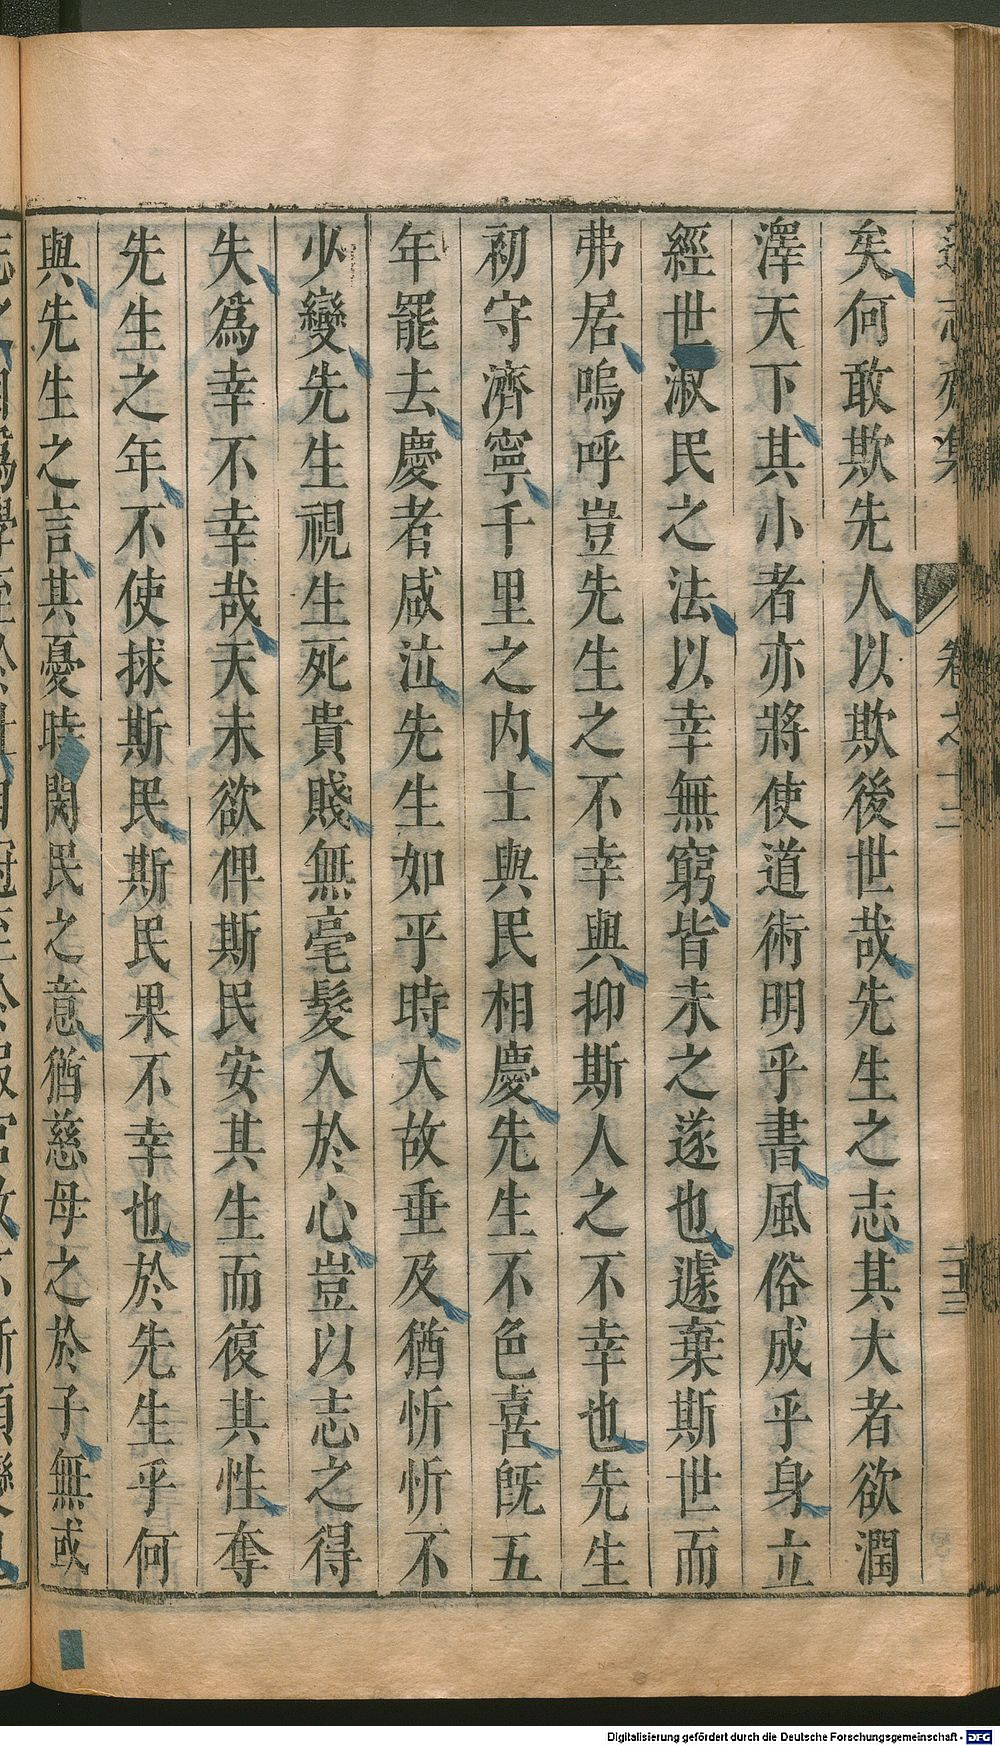 矣何敢欺先人以欺後世哉先生之志其大者欲潤
澤天下其小者亦將使道術明乎書風俗成乎身立
經世淑民之法以幸無窮皆未之遂也遽棄斯世而
弗居嗚呼豈先生之不幸與抑斯人之不幸也先生
初守濟寧千里之内士與民相慶先生不色喜旣五
年罷去慶者咸泣先生如平時大故垂及猶忻忻不
少變先生視生死貴賤無毫髮入於心豈以志之得
失爲幸不幸哉天未欲俾斯民安其生而復其性奪
先生之年不使捄斯民斯民果不幸也於先生乎何
與先生之言其憂時閔民之意猶慈母之於子無或
卷之十二
二十三
Digitalisierung gefördert durch die Deutsche Forschungsgemeinschaft - DFG